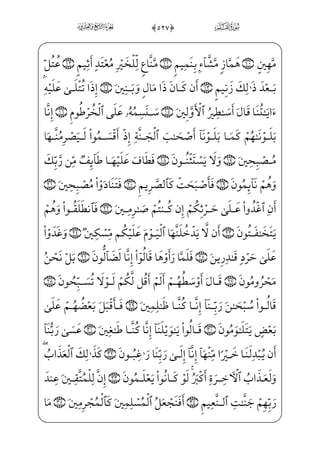 الجزء التاسع والعشرون ﴿٥٢٧﴾ سورة القلم
مَّهِينٍ ۝١٠ هَمَّازٍ مَّشَّآءٍۭ بِنَمِيمٍ ۝١١ مَّنَّاعٍ لِّلْخَيْرِ مُعْتَدٍ أَثِيمٍ ۝١٢ عُتُلٍّۭ
بَعْدَ ذَٰلِكَ زَنِيمٍ ۝١٣ أَن كَانَ ذَا مَالٍ وَبَنِينَ ۝١٤ إِذَا تُتْلَىٰ عَلَيْهِ
ءَايَٰتُنَا قَالَ أَسَٰطِيرُ ٱلْأَوَّلِينَ ۝١٥ سَنَسِمُهُۥ عَلَى ٱلْخُرْطُومِ ۝١٦ إِنَّا
بَلَوْنَٰهُمْ كَمَا بَلَوْنَآ أَصْحَٰبَ ٱلْجَنَّةِ إِذْ أَقْسَمُوا۟ لَيَصْرِمُنَّهَا
مُصْبِحِينَ ۝١٧ وَلَا يَسْتَثْنُونَ ۝١٨ فَطَافَ عَلَيْهَا طَآئِفٌ مِّن رَّبِّكَ
وَهُمْ نَآئِمُونَ ۝١٩ فَأَصْبَحَتْ كَٱلصَّرِيمِ ۝٢٠ فَتَنَادَوْا۟ مُصْبِحِينَ ۝٢١
أَنِ ٱغْدُوا۟ عَلَىٰ حَرْثِكُمْ إِن كُنتُمْ صَٰرِمِينَ ۝٢٢ فَٱنطَلَقُوا۟ وَهُمْ
يَتَخَٰفَتُونَ ۝٢٣ أَن لَّا يَدْخُلَنَّهَا ٱلْيَوْمَ عَلَيْكُم مِّسْكِينٌ ۝٢٤ وَغَدَوْا۟
عَلَىٰ حَرْدٍ قَٰدِرِينَ ۝٢٥ فَلَمَّا رَأَوْهَا قَالُوٓا۟ إِنَّا لَضَآلُّونَ ۝٢٦ بَلْ نَحْنُ
مَحْرُومُونَ ۝٢٧ قَالَ أَوْسَطُهُمْ أَلَمْ أَقُل لَّكُمْ لَوْلَا تُسَبِّحُونَ ۝٢٨
قَالُوا۟ سُبْحَٰنَ رَبِّنَآ إِنَّا كُنَّا ظَٰلِمِينَ ۝٢٩ فَأَقْبَلَ بَعْضُهُمْ عَلَىٰ
بَعْضٍ يَتَلَٰوَمُونَ ۝٣٠ قَالُوا۟ يَٰوَيْلَنَآ إِنَّا كُنَّا طَٰغِينَ ۝٣١ عَسَىٰ رَبُّنَآ
أَن يُبْدِلَنَا خَيْرًا مِّنْهَآ إِنَّآ إِلَىٰ رَبِّنَا رَٰغِبُونَ ۝٣٢ كَذَٰلِكَ ٱلْعَذَابُ ۖ
وَلَعَذَابُ ٱلْءَاخِرَةِ أَكْبَرُ ۚ لَوْ كَانُوا۟ يَعْلَمُونَ ۝٣٣ إِنَّ لِلْمُتَّقِينَ عِندَ
رَبِّهِمْ جَنَّٰتِ ٱلنَّعِيمِ ۝٣٤ أَفَنَجْعَلُ ٱلْمُسْلِمِينَ كَٱلْمُجْرِمِينَ ۝٣٥ مَا